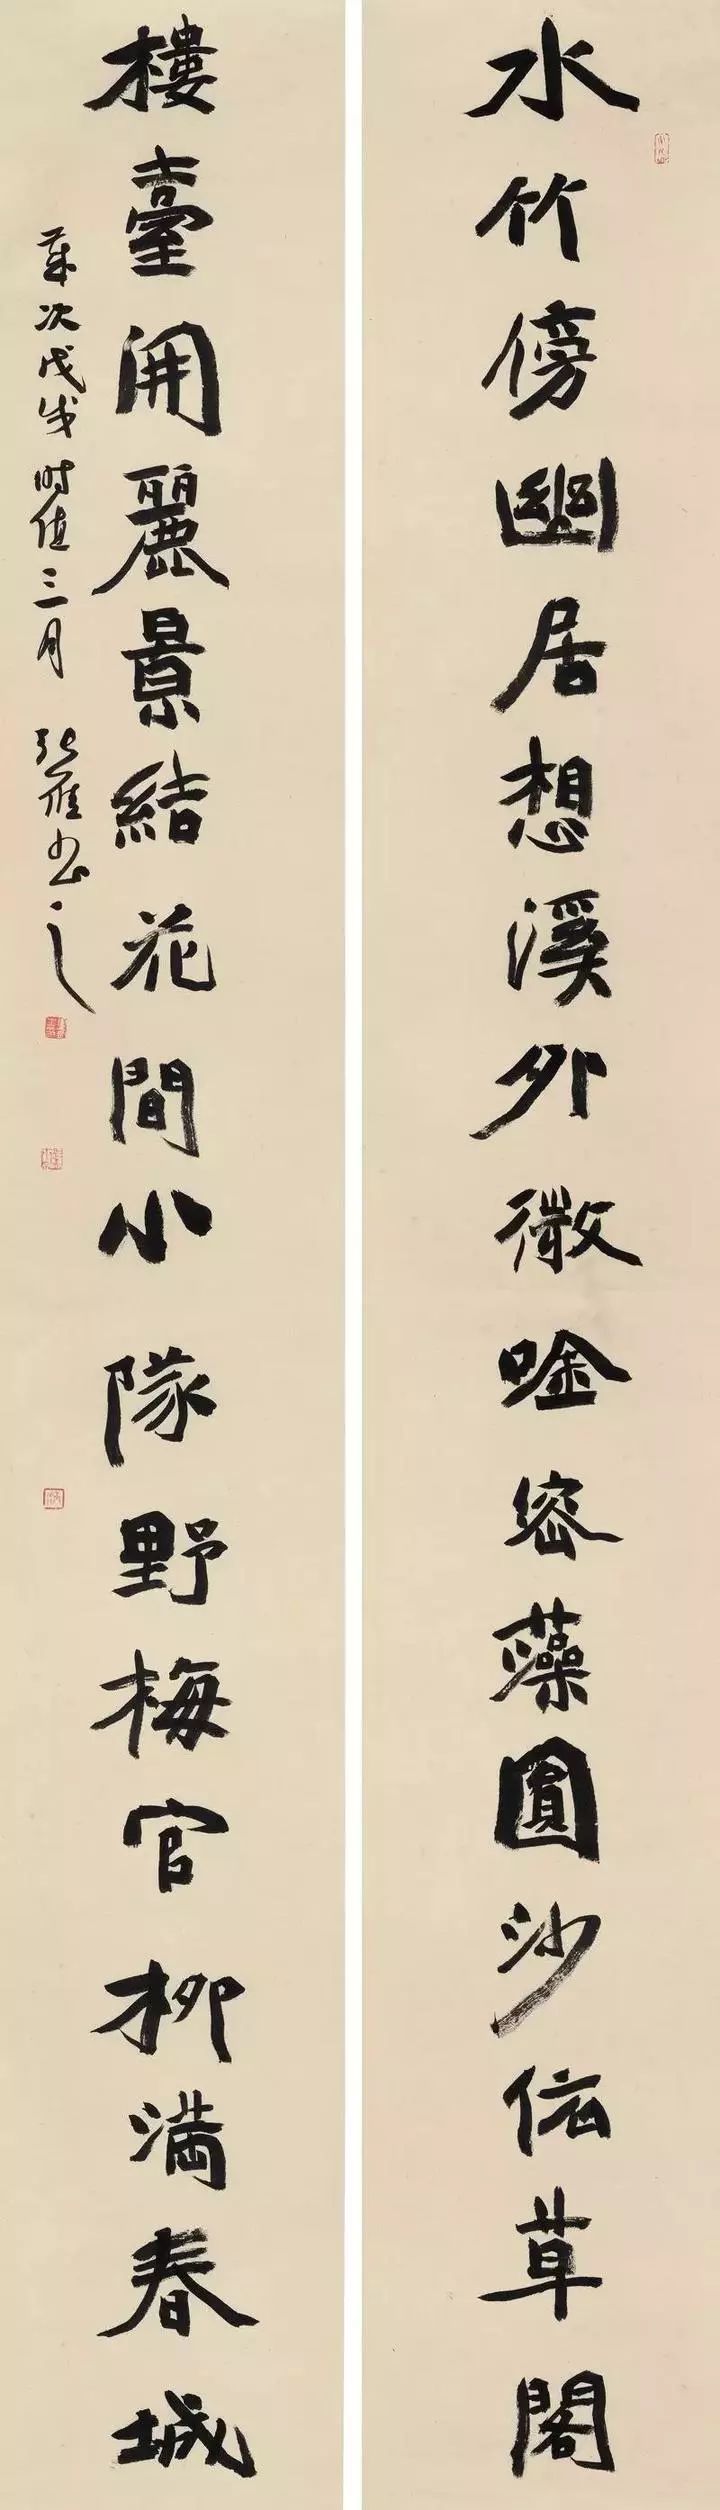 水竹傍幽居想溪外微唫密藻圓沙依草閣
樓臺開麗景結花間小隊野梅官柳满春城
歲次戊戌时值三月张书之